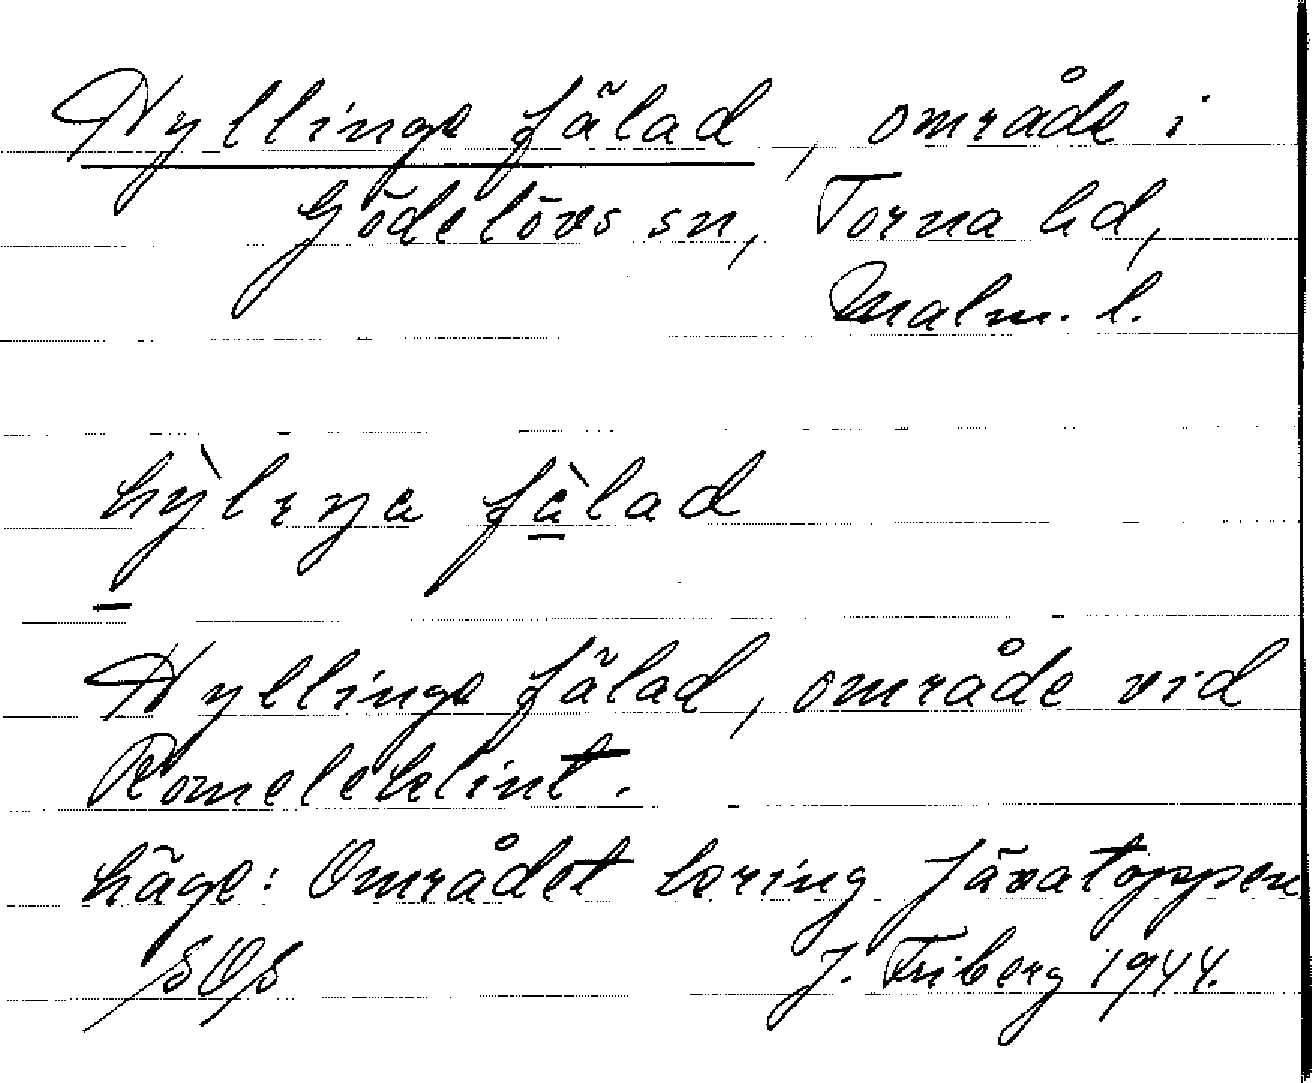 Hyllinge fälad, område i
Gödelövs sn, Torna hd,
Malm. l.
fälad
Hyllinge fälad, område vid
Romeleklint.
Läge: Området kring Jävatoppen
J. Friberg 1944.